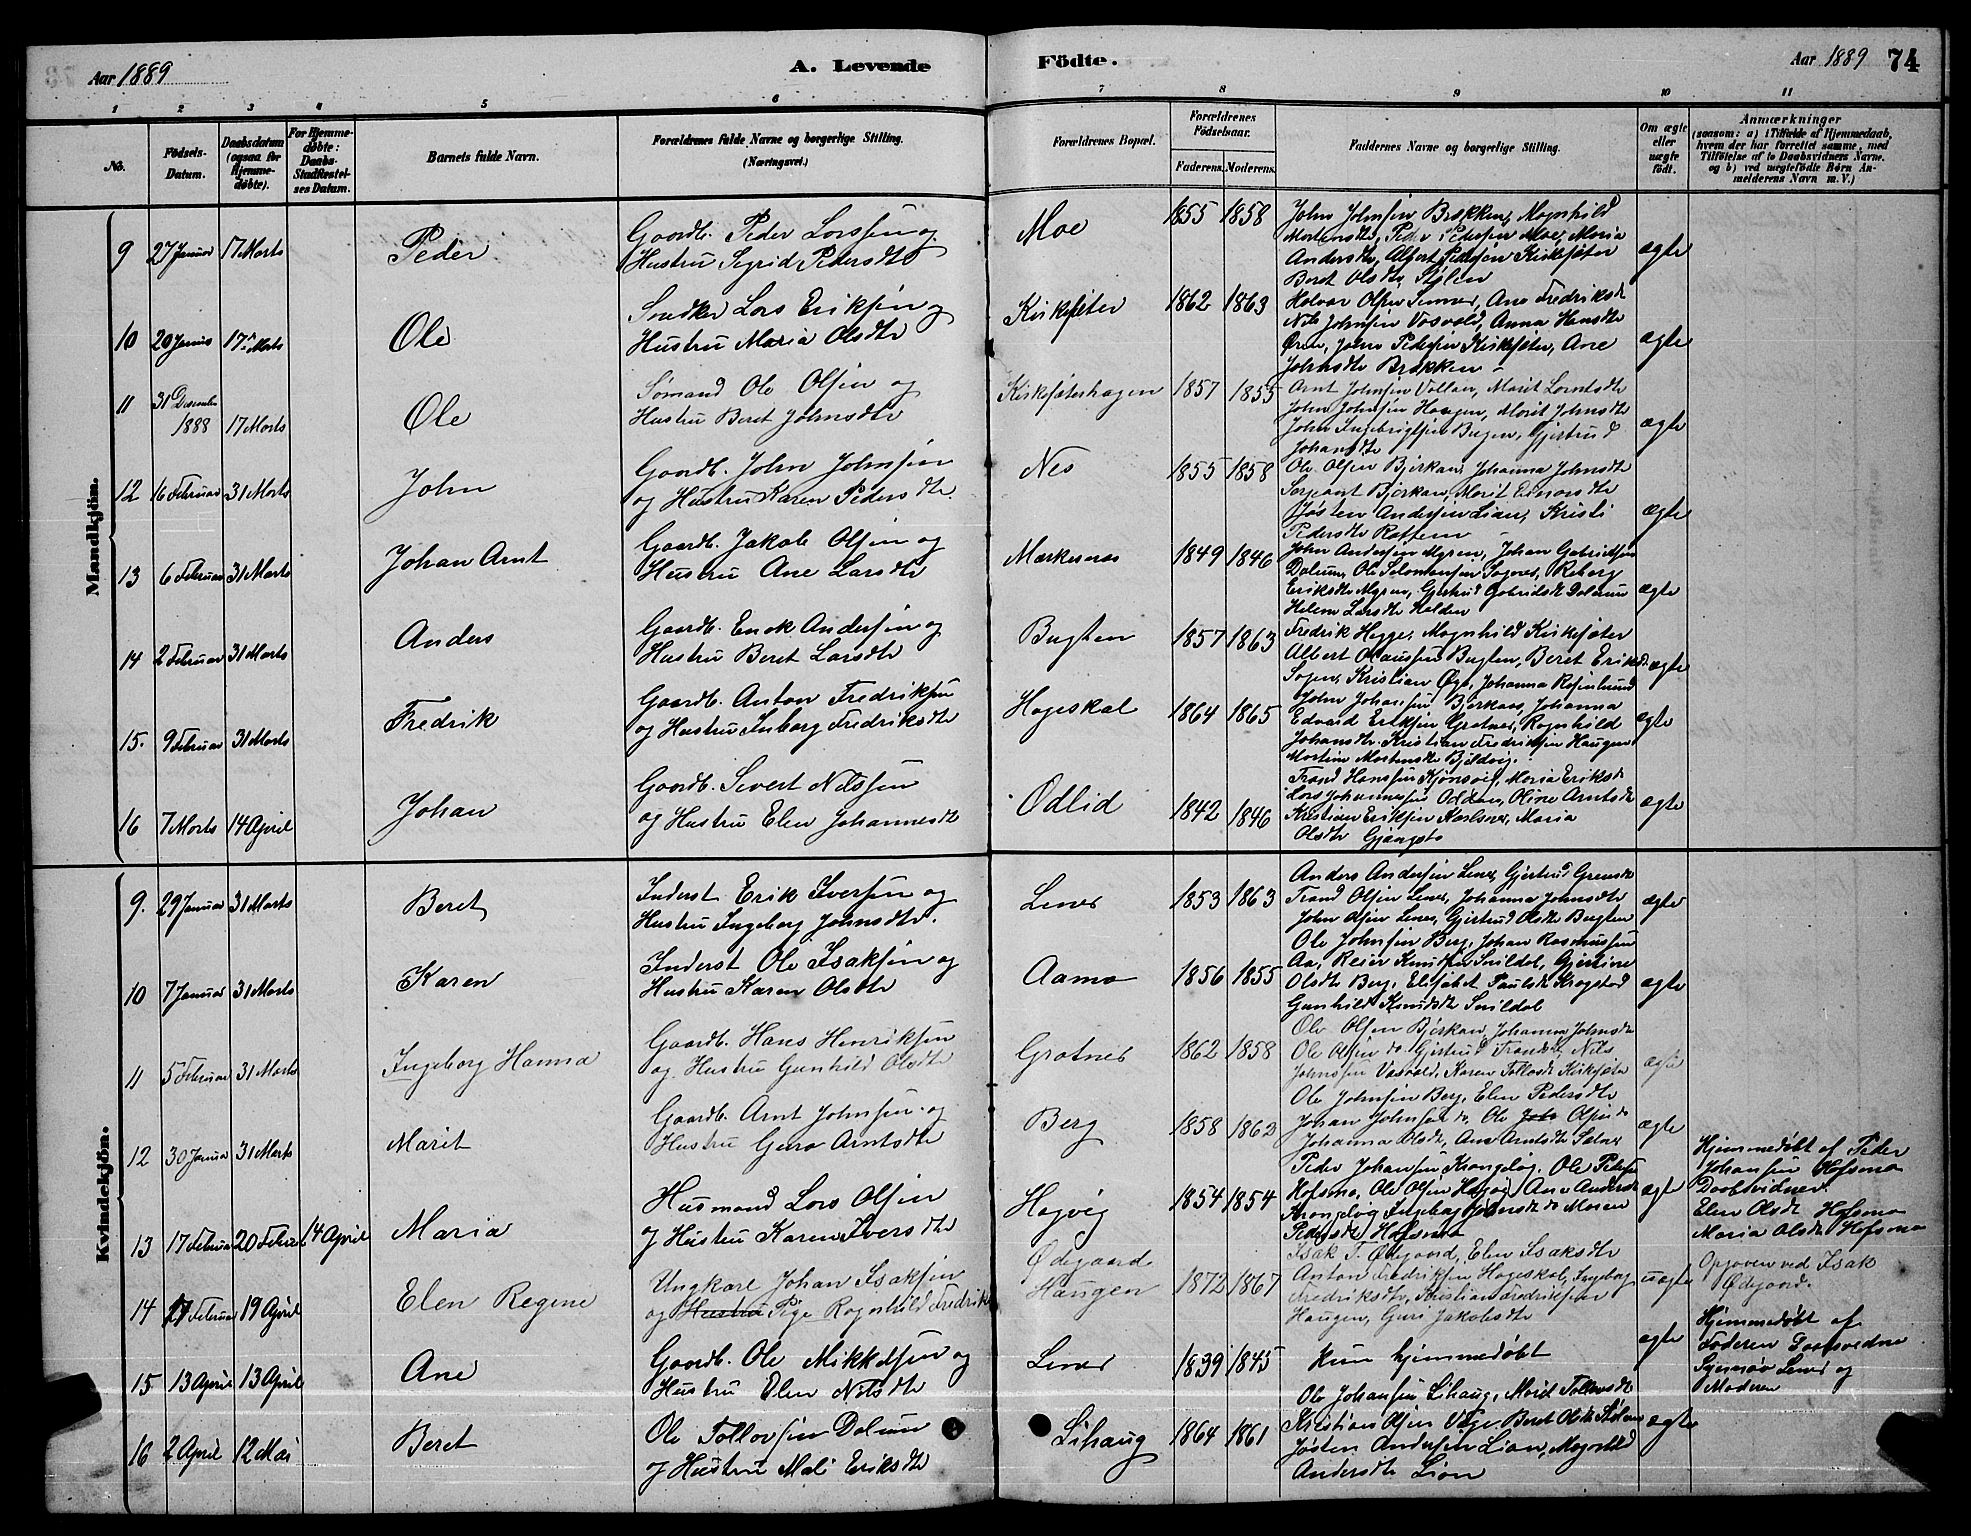 Aar 1889
A. Levende
Födte.
Aar 1889
74
1 2 3 4 5 6 7 8 9 10 11
No.
Födsels-
Datum.
Daabsdatum
(ogsaa for
Hjemme-
døbte).
For Hjemme-
døbte:
Daabs-
Stadfæstel-
ses Datum.
Barnets fulde Navn.
Forældrenes fulde Navne og borgerlige Stilling.
(Næringsvei.)
Forældrenes Bopæl.
Forældrenes
Fødselsaar.
Faderens. Moderens.
Faddernes Navne og borgerlige Stilling.
Om ægte
eller
uægte
født.
Anmærkninger
(saasom: a) i Tilfælde af Hjemmedaab,
hvem der har forrettet samme, med
Tilføielse af to Daabsvidners Navne.
og b) ved uægtefødte Børn An-
melderens Navn m. V.)
Mandkjön.
9 27 Januar 17 Marts Peder
Gaardb. Peder Larssen og
Hustru Sigrid Pedersdtr
Moe 1855 1858
John Johnsen Brekken, Magnhild
Mortensdtr, Peder Pedersen Moe, Maria
Andersdtr, Albert Pedersen Kirksæter
Beret Olsdtr Stølen
ægte
10 20 Januar 17 Marts Ole
Snedker Lars Eriksen og
Hustru Maria Olsdtr
Kirksæter 1862 1863
Halvor Olsen, Ane Fredriksdtr
Nils Johnsen Vasvold, Anna Hansdtr
John Pedersen Kirksæter, Ane
Johnsdtr Brekken
ægte
11 31 December
1888 17 Marts Ole
Sømand Ole Olsen og
Hustru Beret Johnsdtr
Kirksæterhagen 1857 1855
Arnt Johnsen Vollan, Marit Larntsdtr
John Johnsen Haugen, Marit Johnsdtr
John Ingebrigtsen Bugten, Gjertrud
Johansdtr
ægte
12 16 Februar 31 Marts John
Gaardb. John Johnsen
og Hustru Karen Pedersdtr
Nes 1855 1858
Ole Olsen Bjerkan, Johanna Johnsdtr
Sergeant Bjerkan, Marit Einarsdtr
Jøsten Andersen Lian, Kristi
Pedersdtr
ægte
13 6 Februar 31 Marts Johan Arnt
Gaardb. Jakob Olsen og
Hustru Ane Larsdtr
Mærkesnes 1849 1846
John Andersen Myren, Johan Gabrielsen
Dalum, Ole Salomonsen Sognes,
Eriksdtr Myren, Gjertrud Gabrielsdtr Dalum
Helene Larsdtr Halden
ægte
14 2 Februar 31 Marts Anders
Gaardb. Enok Andersen og
Hustru Beret Larsdtr
Bugten 1857 1863
Fredrik Hegge, Magnhild Kirksæter
Albert Claussen Bugten, Beret Eriksdtr
Kristian Johanna
ægte
15. 9 Februar 31 Marts Fredrik
Gaardb. Anton Fredriksen
og Hustru Inborg Fredriksdtr
Hageskal 1864 1865
John Johansen Bjerkan, Johanna
Edvard Eriksen Grotnes, Ragnhild
Johansdtr. Kristian Fredriksen Haugen
Martine Mortensdtr
ægte
16 7 Marts 14 April Johan
Gaardb. Sivert Nilssen
og Hustru Elen Johannesdtr
Odlid 1842 1846
Trond Hanssen, Maria Eriksdtr
Lars Johannessen Oddan, Oline Arntsdtr
Kristian Eriksen, Maria
Olsdtr Gjengsto
ægte
Kvindekjön.
9. 29 Januar 31 Marts Beret
Inderst Erik Iversen og
Hustru Ingeborg Johnsdtr.
Lenes 1853 1863
Anders Andersen Lenes, Gjertrud
Trond Olsen Lenes, Johanna Johnsdtr
John Olsen Lenes, Gjertrud Olsdtr Bugten
ægte
10 7 Januar 31 Marts Karen
Inderst Ole Isaksen og
Hustru Karen Olsdtr
Aamo 1856 1855
Ole Johnsen Berg, Johan Rasmussen
Aa, Reier Knudsen Snildal, Gjertine
Olsdtr Berg, Elisabet Paulsdtr Krogstad
Gunhild Knudsdtr Snildal
ægte
11 5 Februar 31 Marts Ingeborg Hanna
Gaardb. Hans Henriksen
og Hustru Gunhild Olsdtr
Grotnes 1862 1858
Ole Olsen Bjerkan, Johanna Johnsdtr
Ole Olsen do. Gjertrud Nils
Johnssen Vasvold, Karen Kirksæter
ægte
12 30 Januar 31 Marts Marit
Gaardb. Arnt Johnsen og
Hustru Guro Arntsdtr
Berg 1858 1862
Ole Johnsen Berg, Elen Pedersdtr
Johan Johnsen do, Ole Olsen do
Johanna Olsdtr, Ane Arntsdtr
ægte
13 17 Februar 20 Februar 14 April Maria
Husmand Lars Olsen
og Hustru Karen Iversdtr
Hagvig 1854 1854
Peder Johansen Krongeløg, Ole Pedersen
Hofsmo, Ole Olsen Hagvig, Ane Andersdtr
Krongeløg, Ingeborg Johnsdtr do Maren
Pedersdtr Hofsmo
ægte
Hjemmedøbt af Peder
Johansen Hofsmo
Daabsvidner
Elen Olsdtr Hofsmo
Maria Olsdtr Hofsmo
14 17 Februar 19 April Elen Regine
Ungkarl Johan Isaksen
og Hustru Pige Ragnhild Fredrik
Ødegaard
Haugen 1872 1867
Isak T. Ødegaard, Elen Isaksdtr
Anton Fredriksen Hageskal, Ingeborg
Fredriksdtr, Kristian Fredriksen
Haugen, Guri Jakobsdtr
uægte
Opgaven ved Isak
Ødegaard.
15 13 April 13 April Ane
Gaardb. Ole Mikkelsen og
Hustru Elen Nilsdtr
Lenes 1839 1845
kun hjemmedøbt
ægte
Hjemmedøbt af
Faderen Daabsvidne
Lenes og
Moderen
16 2 April 12 Mai Beret
Ole Tollovsen Dalum
og Hustru Mali Eriksdtr
Lihaug 1864 1861
Ole Johansen Lihaug, Marit
Kristian Olsen Beret Olsdtr Stølen
Jøsten Andersen Lian, Magnhild
Andersdtr Lian
ægte